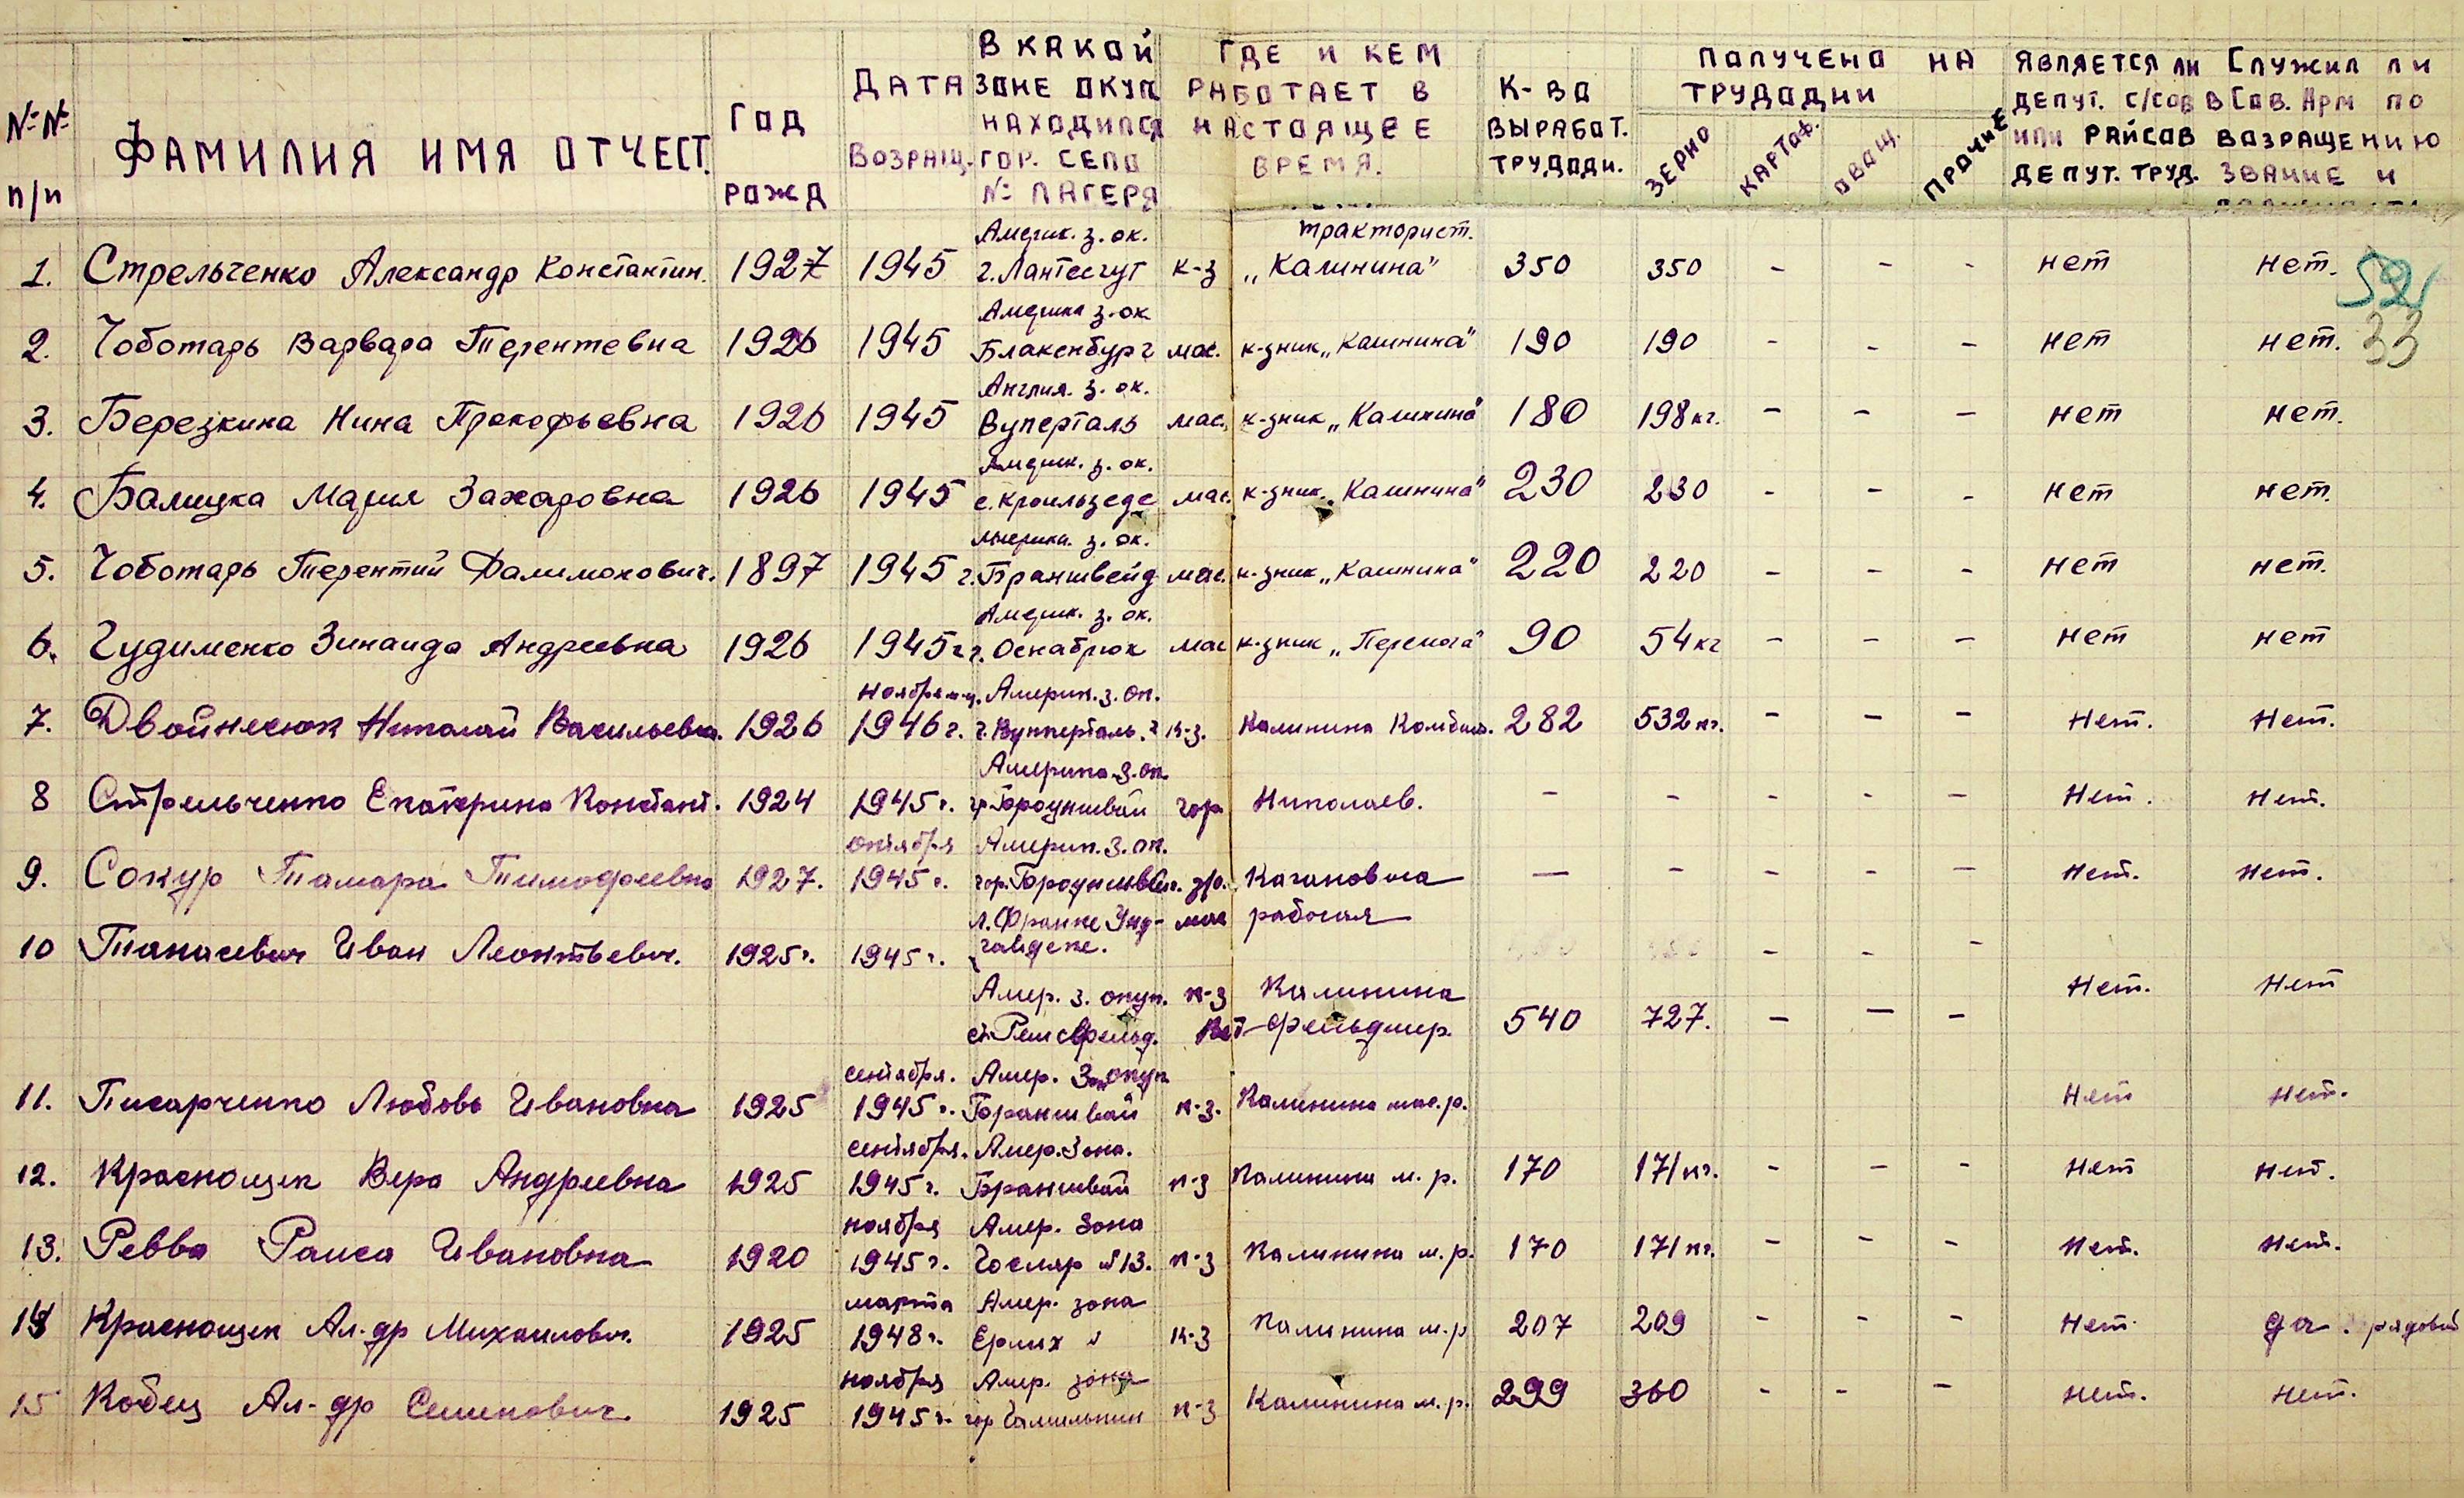 № № п/п
ФАМИЛИЯ ИМЯ ОТЧЕСТ.
ГОД РОЖД
ДАТА ВОЗРАЩ.
В КАКОЙ ЗОНЕ ОКУП НАХОДИЛСЯ ГОР. СЕЛО № ЛАГЕРЯ
ГДЕ И КЕМ РАБОТАЕТ В НАСТОЯЩЕЕ ВРЕМЯ.
К-ВО ВЫРАБОТ. ТРУДОДН.
ПОЛУЧЕНО НА ТРУДОДНИ
ЗЕРНО КАРТОФ. ОВОЩ. ПРОЧИЕ
ЯВЛЯЕТСЯ ЛИ ДЕПУТ. С/СОВ ИЛИ РАЙСОВ ДЕПУТ. ТРУД.
СЛУЖИЛ ЛИ В СОВ. АРМ ПО ВОЗРАЩЕНИЮ ЗВАНИЕ И
Америк. з. ок. тракторист.
1. Стрельченко Александр Константин. 1927 1945 г. Лантесгут к-з „Калинина" 350 350 - - - нет нет.
52
Америка з. ок
2. Чоботарь Варвара Терентевна 1926 1945 Блакенбург мас. к-зник „Калинина" 190 190 - - - нет нет. 33
Англия. з. ок.
3. Березкина Нина Прокофьевна 1926 1945 Вуперталь мас. к-зник „Калинина" 180 198 кг. - - - нет нет.
Америк. з. ок.
4. Балицка Мария Захаровна 1926 1945 с. Кроильзеде мас. к-зник „Калинина" 230 230 - - - нет нет.
Америка. з. ок.
5. Чоботарь Терентий Фалимонович. 1897 1945 г. Браншвейд мас. к-зник „Калинина" 220 220 - - - нет нет.
Америк. з. ок.
6. Гудименко Зинаида Андреевна 1926 1945 г. г. Оснабрюк мас к-зник „Перемога" 90 54 кг - - - нет нет
ноябрь м-ц. Америк. з. ок.
7. Двойнесюк Николай Васильевич. 1926 1946 г. г. Вупперталь. к-з. Калинина Комбин. 282 532 кг. - - - Нет. Нет.
Америка з. ок.
8 Стрельченко Екатерина Констант. 1924 1945 г. гр. Броуншвай гор Николаев. - - - - - Нет. Нет.
октября Америк. з. ок.
9. Сокур Тамара Тимофеевна 1927. 1945 г. гор. Броуншвайг. з/о. Кагановича — - - - — Нет. Нет.
мас рабочая
10 Танасевич Иван Леонтьевич. 1925 г. 1945 г. - - -
Амер. з. окуп. к-з Калинина Нет. Нет
Вет-фельдшер. 540 727. — — —
сентября. Амер. Зон окуп
11. Писарченко Любовь Ивановна 1925 1945 г. Браншвай к-з. Калинина мас. р. Нет Нет.
сентября. Амер. Зона.
12. Краснощек Вера Андреевна 1925 1945 г. Браншвай к-з Калинина м. р. 170 171 кг. - - - Нет Нет.
ноября Амер. Зона
13. Ревва Раиса Ивановна 1920 1945 г. Госляр № 13. к-з Калинина м. р. 170 171 кг. - - - Нет. Нет.
марта Амер. зона
14 Краснощек Ал-др Михаилович. 1925 1948 г. Ермих к-з Калинина м. р 207 209 - - - Нет. да. рядовой
ноября Амер. зона
15 Кобец Ал-др Семенович. 1925 1945 г. гор Гамильнин к-з Калинина м. р. 299 360 - - - Нет. Нет.